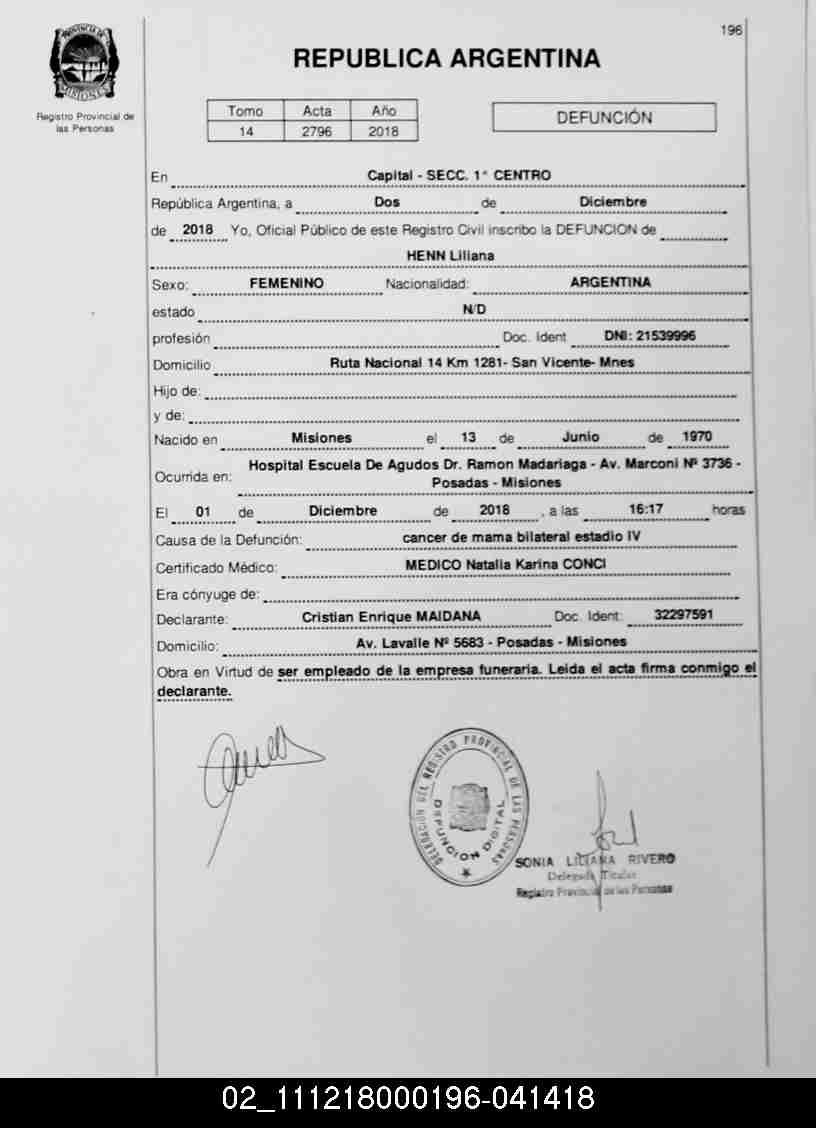 196
PROVINCIA DE
MISIONES
Registro Provincial de
las Personas
REPUBLICA ARGENTINA
Tomo Acta Año
14 2796 2018
DEFUNCIÓN
En Capital - SECC. 1° CENTRO
República Argentina, a Dos de Diciembre
de 2018 Yo, Oficial Público de este Registro Civil inscribo la DEFUNCION de
HENN Liliana
Sexo: FEMENINO Nacionalidad: ARGENTINA
estado N/D
profesión Doc. Ident DNI: 21539996
Domicilio Ruta Nacional 14 Km 1281- San Vicente- Mnes
Hijo de:
y de:
Nacido en Misiones el 13 de Junio de 1970
Ocurrida en: Hospital Escuela De Agudos Dr. Ramon Madariaga - Av. Marconi Nº 3736 -
Posadas - Misiones
El 01 de Diciembre de 2018 , a las 16:17 horas
Causa de la Defunción: cancer de mama bilateral estadio IV
Certificado Médico: MEDICO Natalia Karina CONCI
Era cónyuge de:
Declarante: Cristian Enrique MAIDANA Doc. Ident: 32297591
Domicilio: Av. Lavalle Nº 5683 - Posadas - Misiones
Obra en Virtud de ser empleado de la empresa funeraria. Leida el acta firma conmigo el
declarante.
DELEGACIÓN DEL REGISTRO PROVINCIAL DE LAS PERSONAS
DEFUNCION DIGITAL
SONIA LILIANA RIVERO
Delegada Titular
Registro Provincial de las Personas
02_111218000196-041418